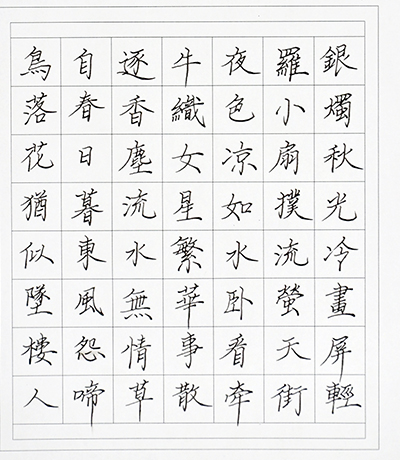 銀燭秋光冷畫屏輕
羅小扇撲流螢天街
夜色凉如水卧看牽
牛織女星繁華事散
逐香塵流水無情草
自春日暮東風怨啼
鳥落花猶似墜樓人